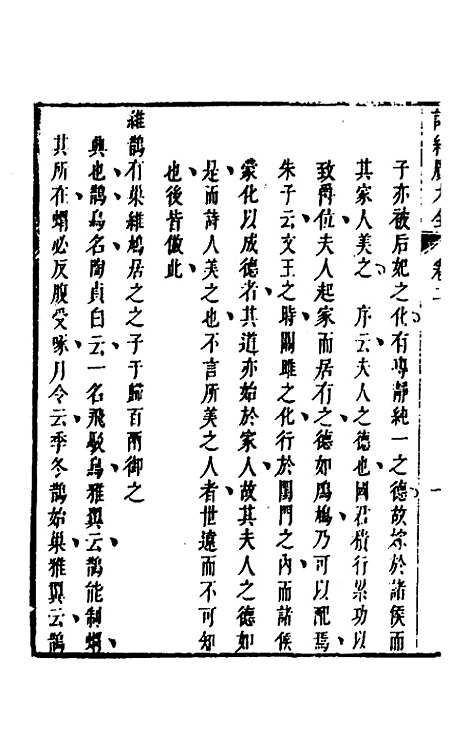 詩經廣大全 卷二 一
子亦被后妃之化有專靜純一之德故嫁於諸侯而
其家人美之　序云夫人之德也國君積行累功以
致爵位夫人起家而居有之德如鳲鳩乃可以配焉
朱子云文王之時關雎之化行於閨門之內而諸侯
蒙化以成德者其道亦始於家人故其夫人之德如
是而詩人美之也不言所美之人者世遠而不可知
也後皆倣此
維鵲有巢維鳩居之之子于歸百兩御之
興也鵲鳥名陶貞白云一名飛駁鳥雅翼云鵲能制蝟
其所在蝟必反腹受啄月令云季冬鵲始巢雅翼云鵲